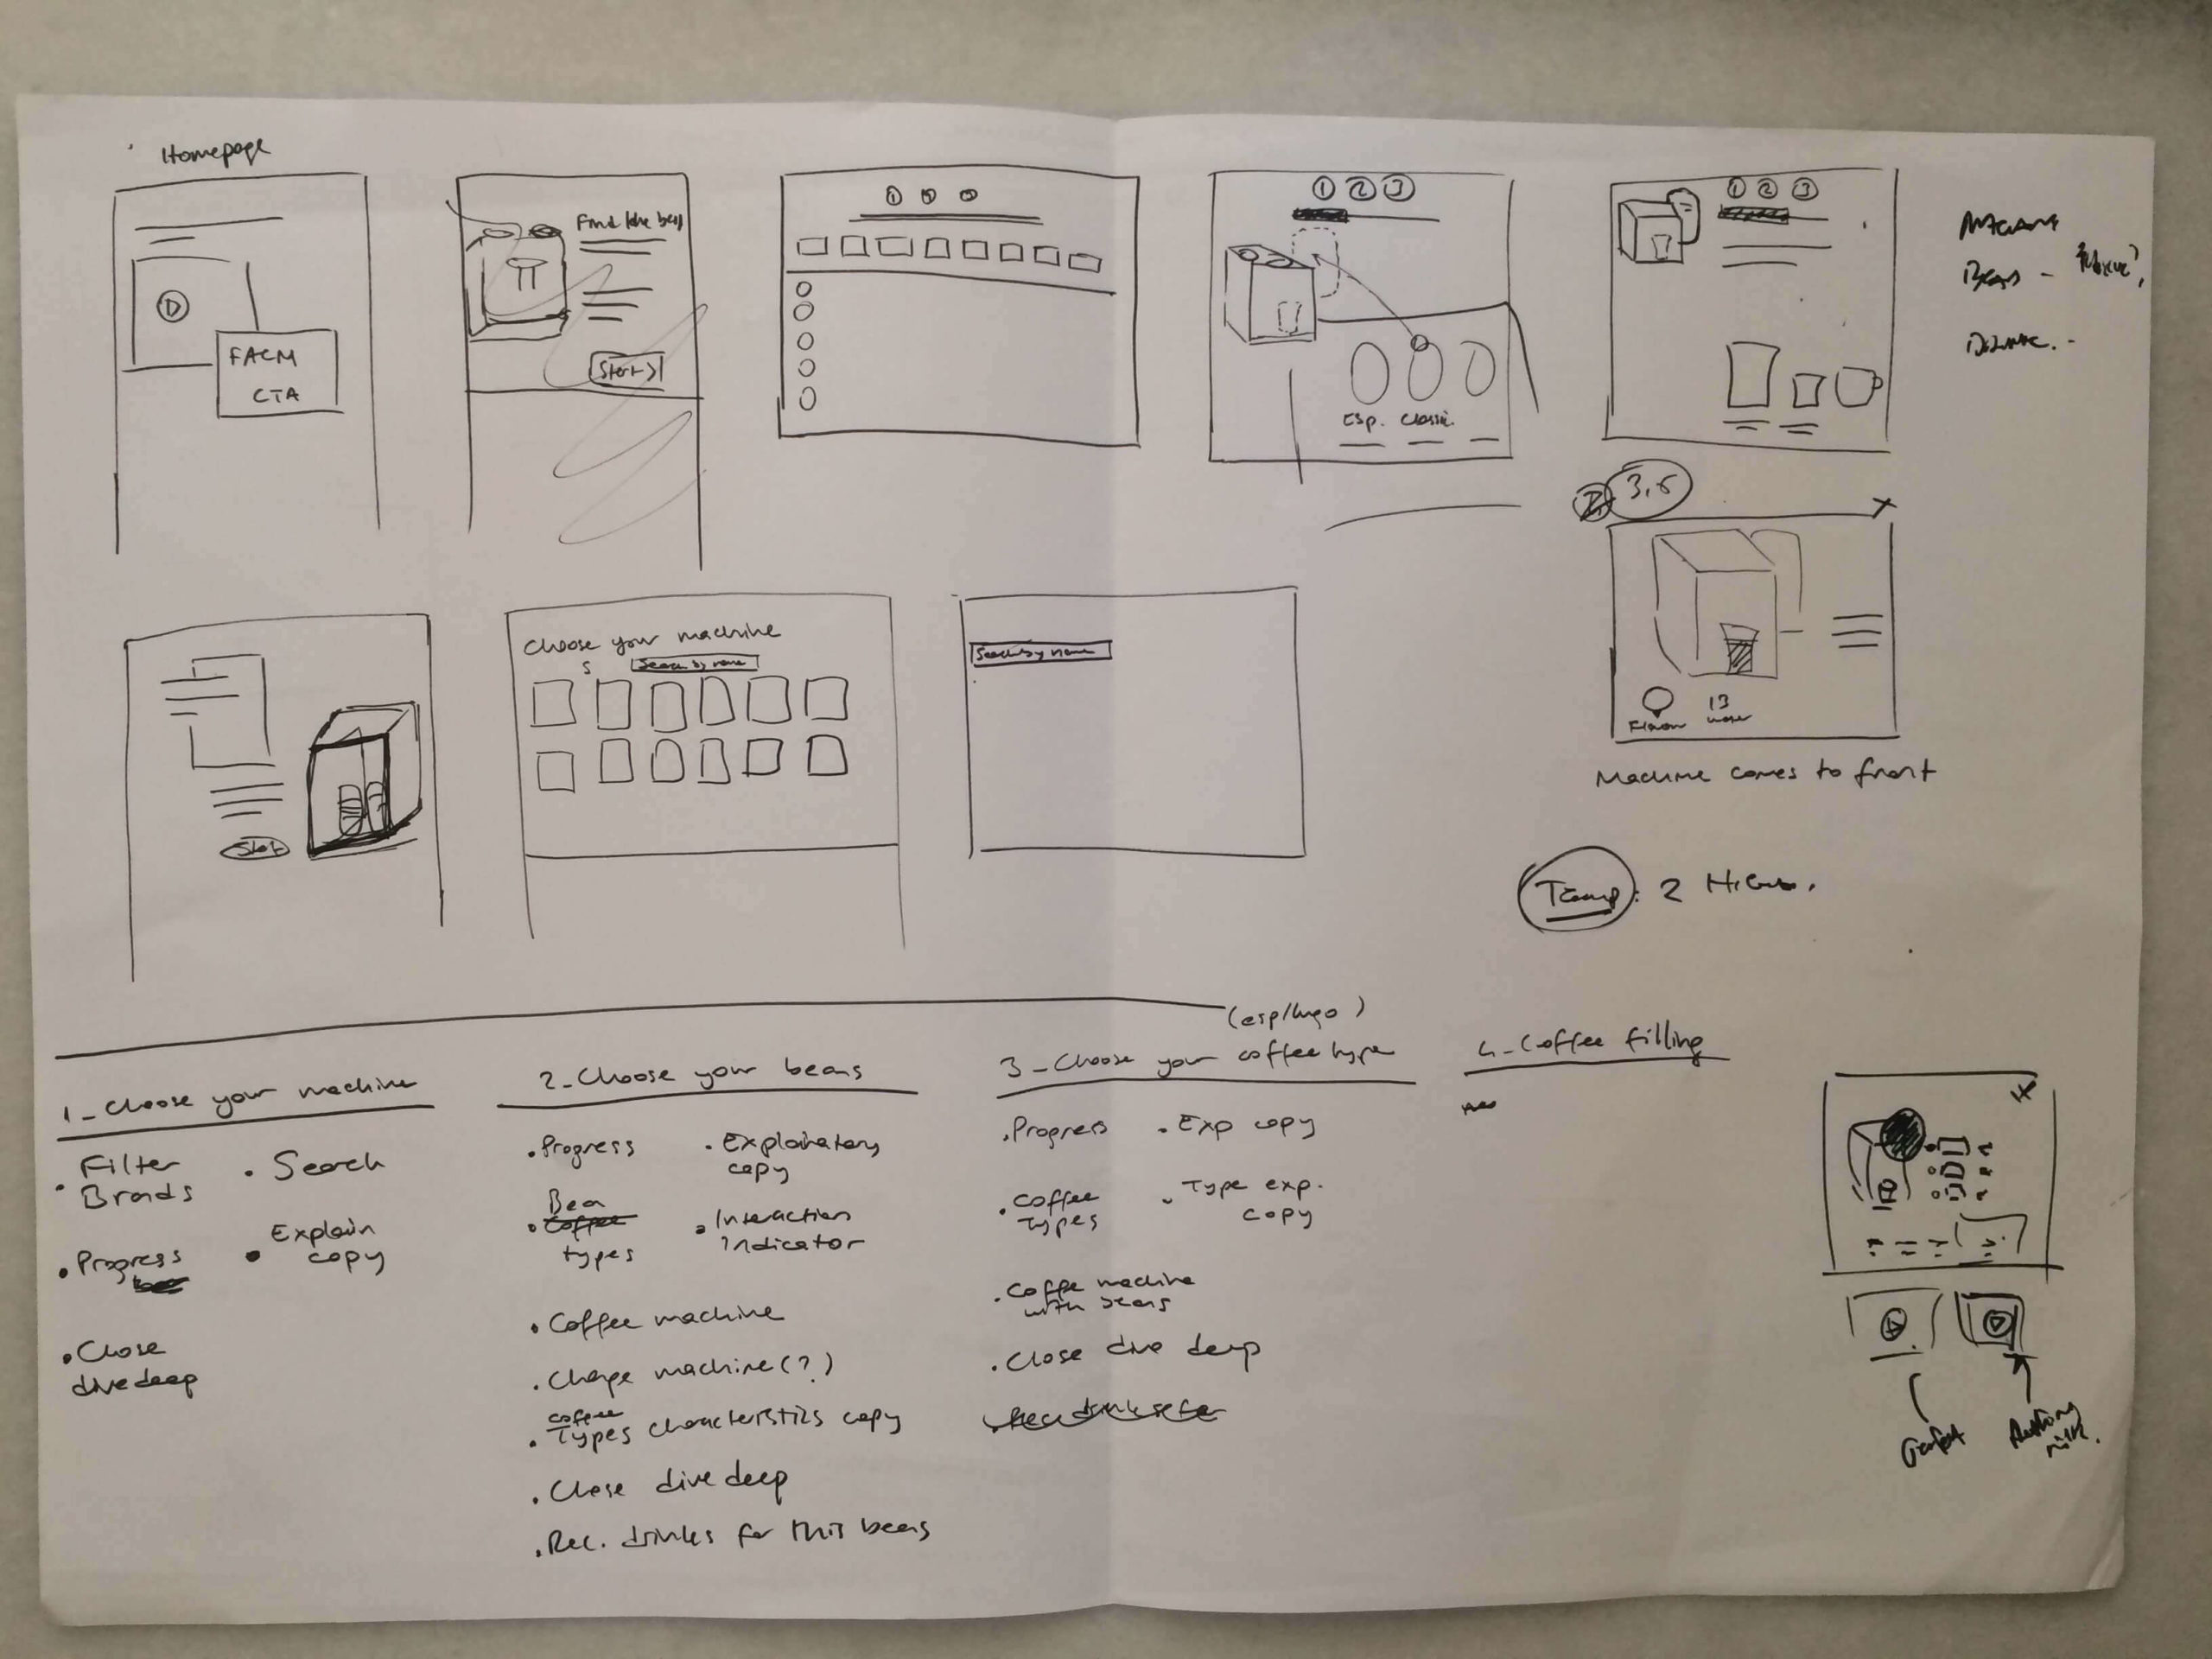 Homepage
FACM
CTA
Find the
Start >
1 2 3
1 2 3
Esp. Classic
1 2 3
3,5
X
13
Machine comes to front
Temp: 2
Choose your machine
Search by name
Search by name
Start
(esp/lugo)
1_Choose your machine
• Filter
Brands
• Search
• Progress
• Explain
copy
• Close
dive deep
2_Choose your beans
• Progress
• Explainatory
copy
Bea
• Coffee
types
• Interaction
indicator
• Coffee machine
• Change machine (?)
coffee
• Types characteristics copy
• Close dive deep
• Rec. drinks for this beans
3_Choose your coffee type
• Progress
• Exp copy
• Coffee
types
• Type exp.
copy
• Coffe machine
with beans
• Close dive deep
4_Coffee filling
X
milk.